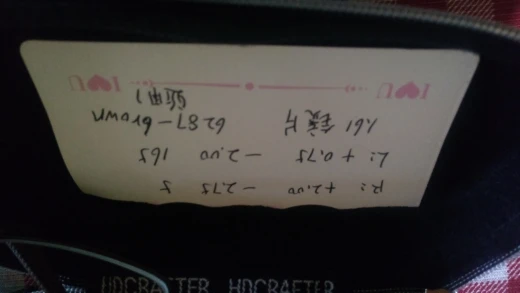 R: +2.00 -2.75 5
L: +0.75 -2.00 165
1.61 镜片 6287-brown
近用)
I♥U I♥U
HDCRAFTER HDCRAFTER